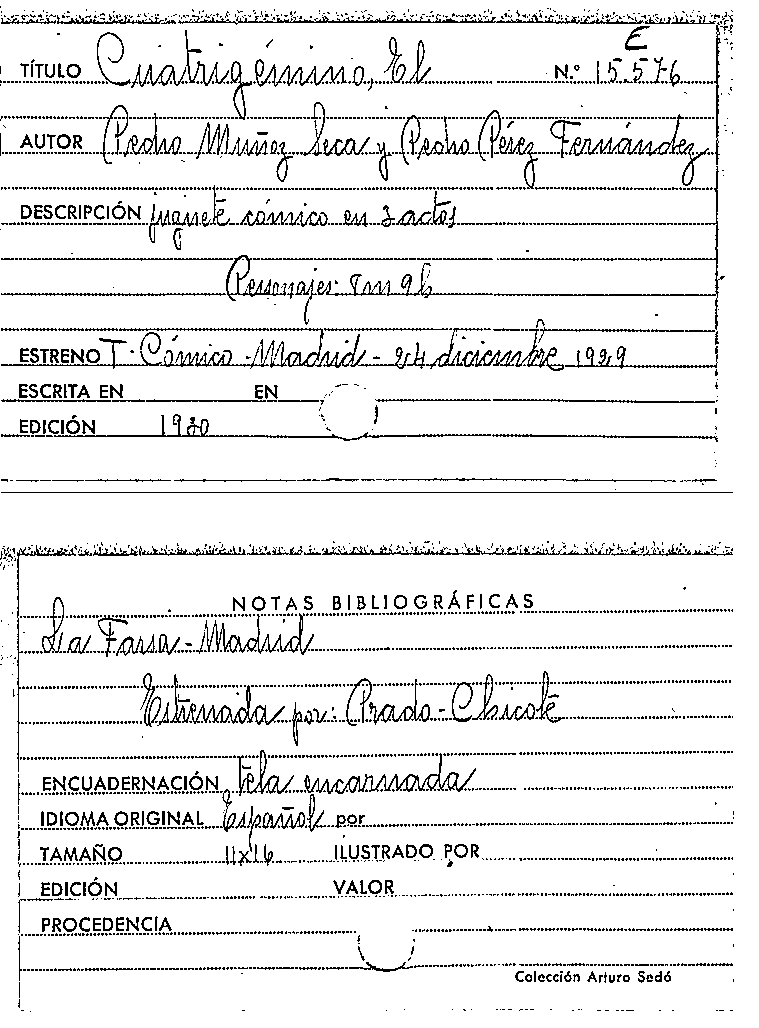 E
TÍTULO Cuatrigémino, El N.º 15.576
AUTOR Pedro Muñoz Seca y Pedro Pérez Fernández
DESCRIPCIÓN juguete cómico en 3 actos
Personajes: 8m 9h
ESTRENO T. Cómico - Madrid - 24 diciembre 1929
ESCRITA EN EN
EDICIÓN 1930
NOTAS BIBLIOGRÁFICAS
La Farsa - Madrid
Estrenada por: Prado - Chicote
ENCUADERNACIÓN tela encarnada
IDIOMA ORIGINAL Español por
TAMAÑO 11x16 ILUSTRADO POR
EDICIÓN VALOR
PROCEDENCIA
Colección Arturo Sedó